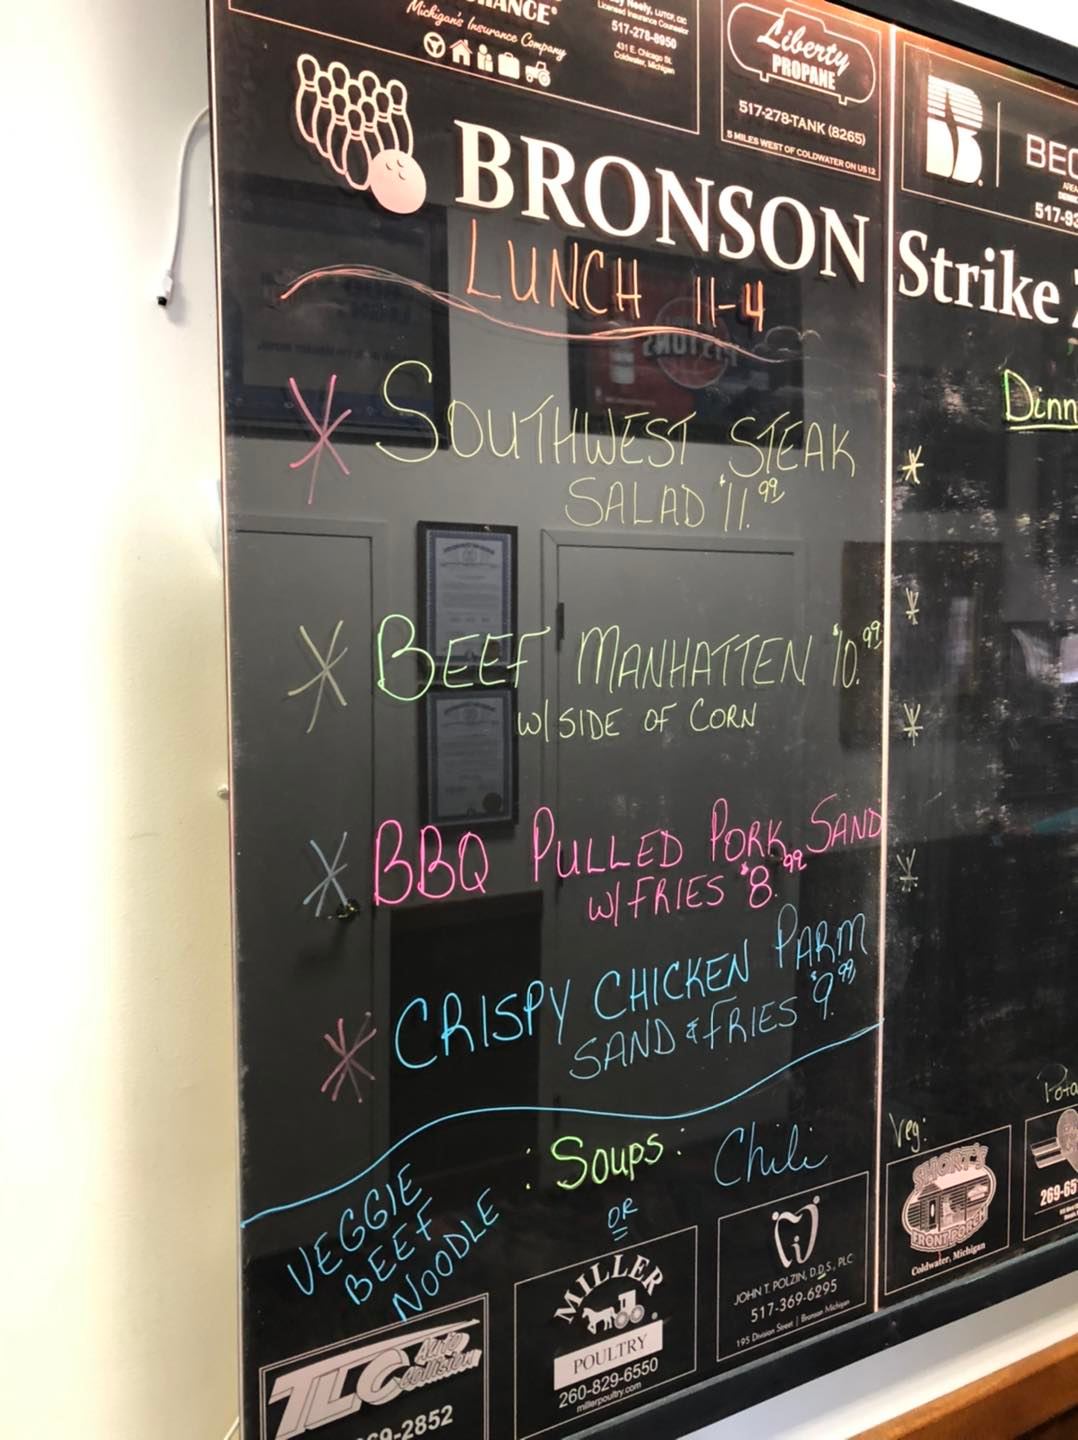 Michigan's Insurance Company
Licensed Insurance Counselor
517-278-8950
431 E. Chicago St.
Coldwater, Michigan
Liberty
PROPANE
517-278-TANK (8265)
5 MILES WEST OF COLDWATER ON US 12
BRONSON
LUNCH 11-4
SOUTHWEST STEAK
SALAD $11.99
BEEF MANHATTEN $10.99
W/ SIDE OF CORN
BBQ PULLED PORK SAND
W/ FRIES $8.99
CRISPY CHICKEN PARM
SAND & FRIES $9.99
: SOUPS: Chili
OR
VEGGIE
BEEF
NOODLE
TLC Auto
Collision
MILLER
POULTRY
260-829-6550
millerpoultry.com
JOHN T. POLZIN, D.D.S., PLC
517-369-6295
195 Division Street | Bronson Michigan
Strike
Veg:
SHORT'S
FRONT PORCH
Coldwater, Michigan